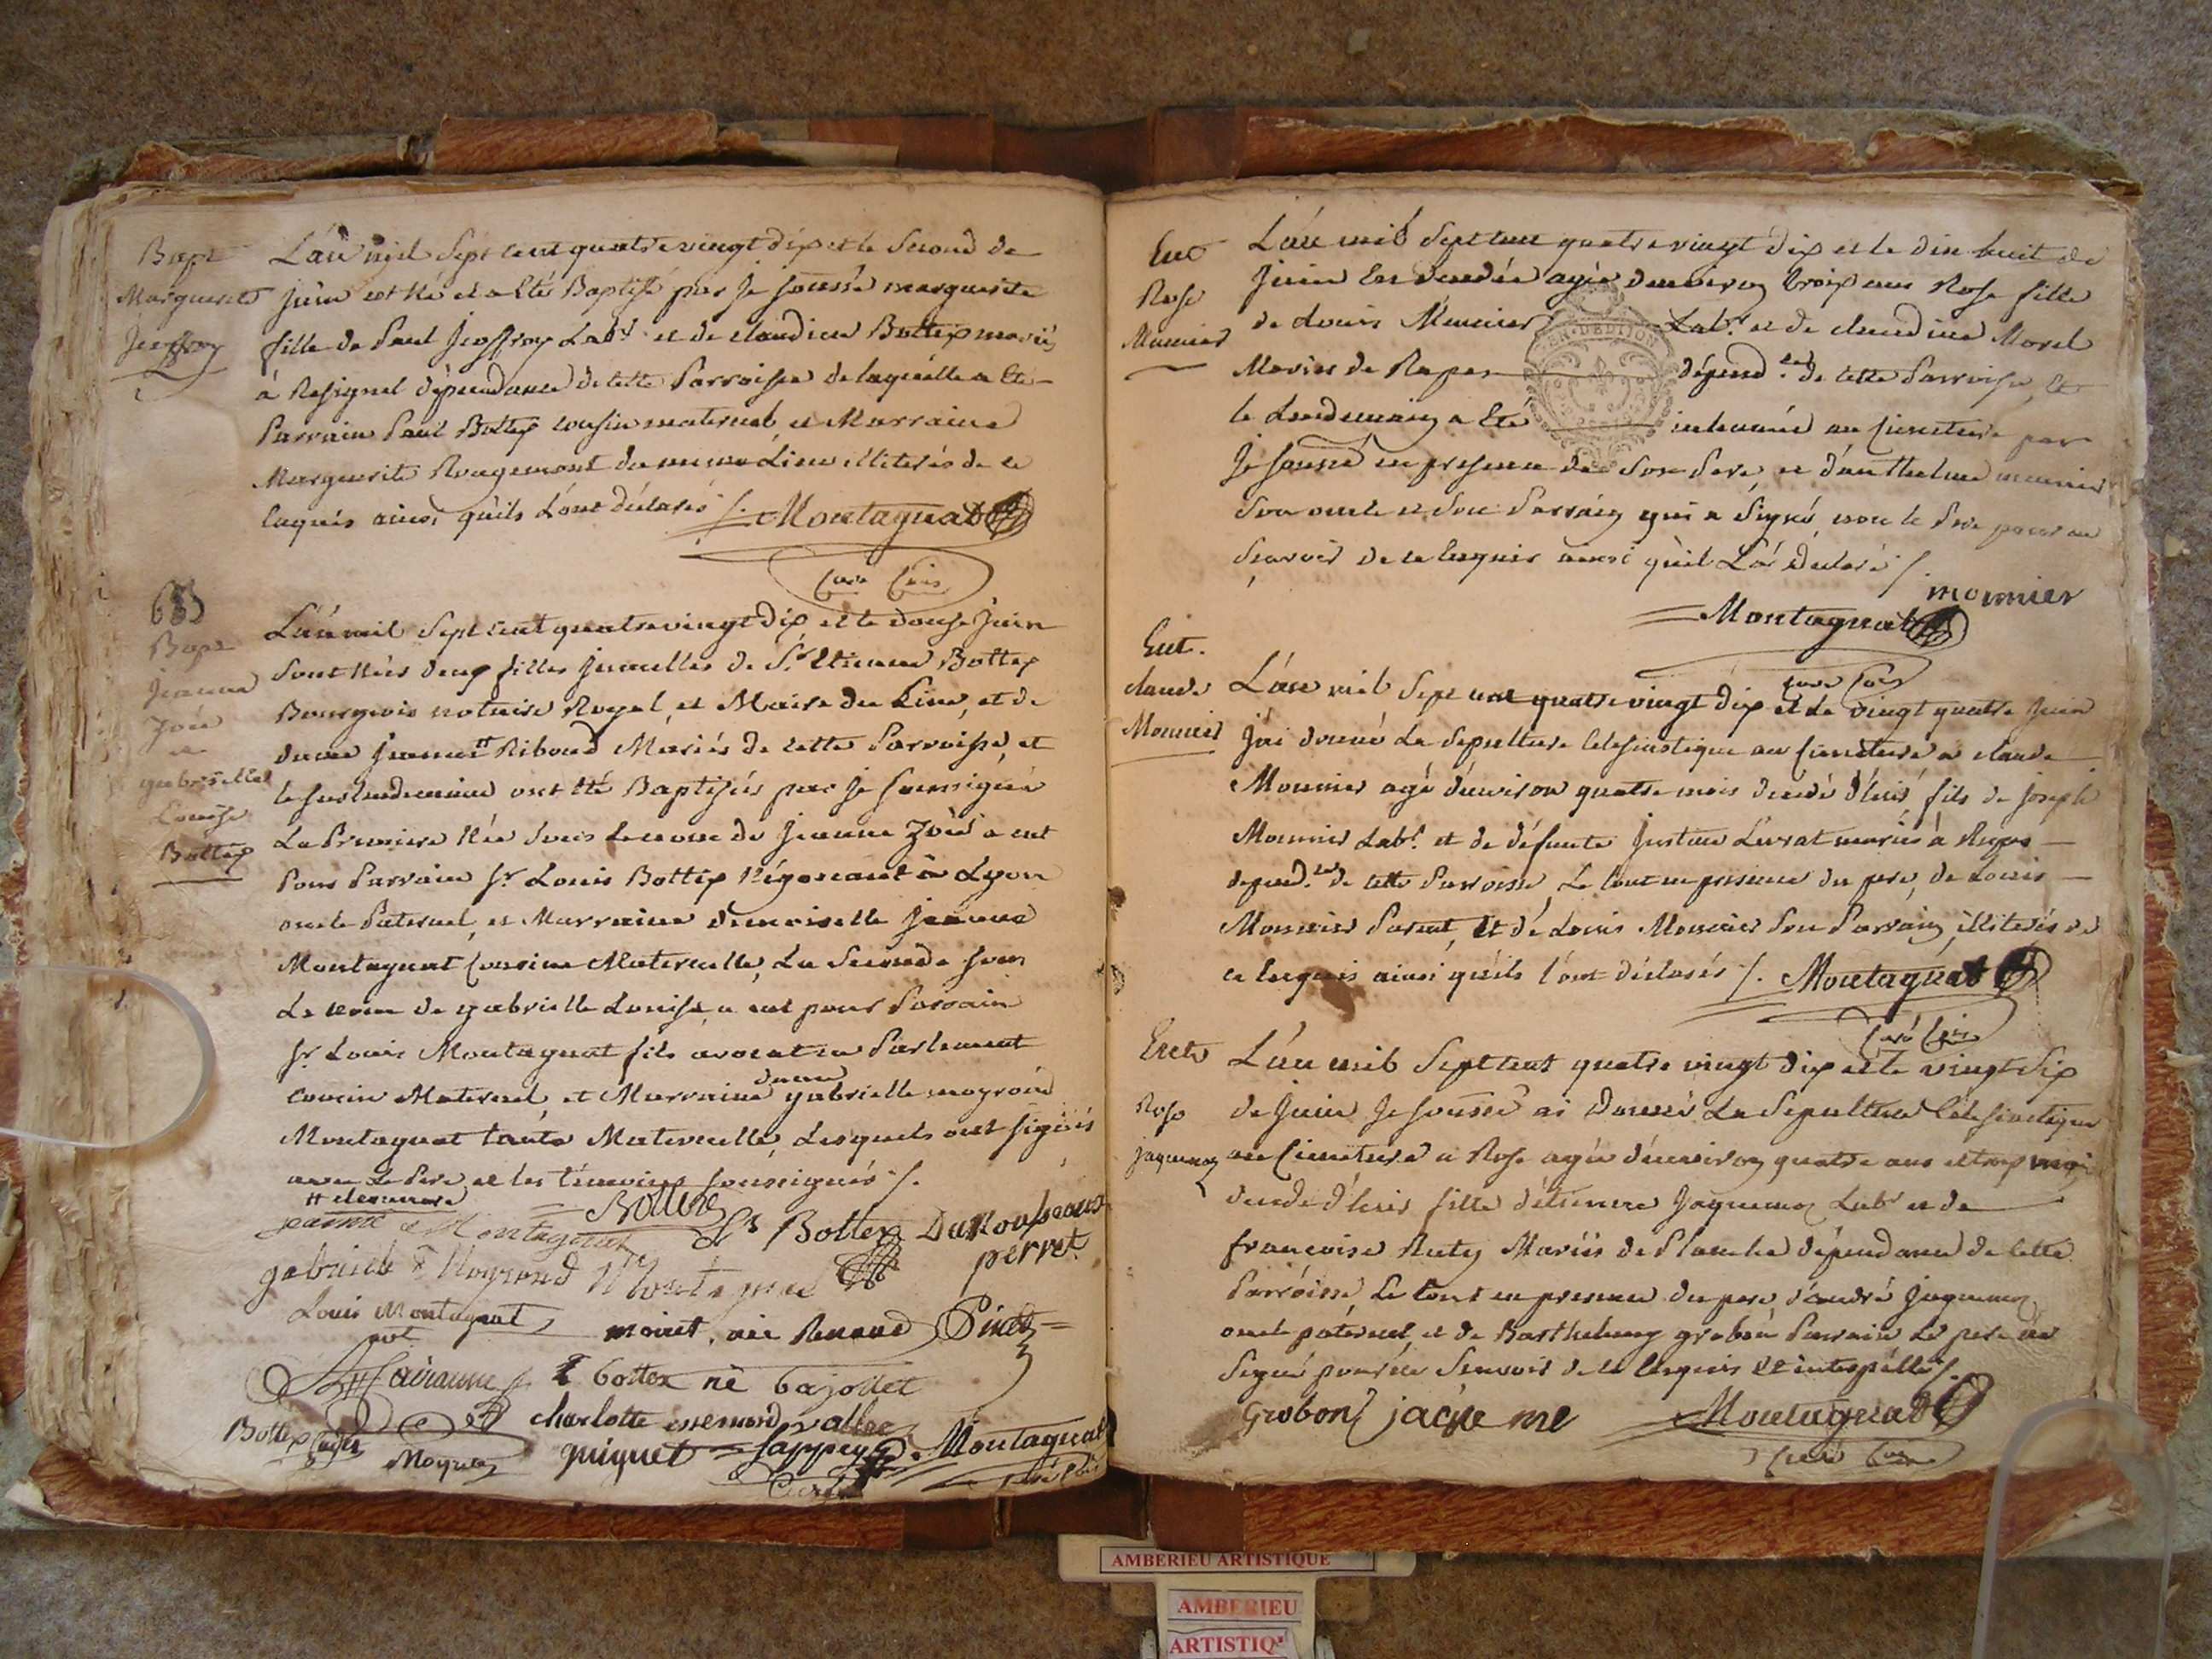 Bapt
Marguerite
Jeoffroy
L'an mil Sept cent quatre vingt dix et le Second de
juin est née et a été Baptisé par je soussé marguerite
fille de Paul Jeoffroy Labr et de claudine Bottex mariés
à Resignel dépendance de cette Parroisse de laquelle a été
Parrain Paul Bottex cousin maternel et Marraine
Marguerite Rougemont du meme Lieu illiterés de ce
enquis ainsi qu'ils L'ont déclaré /. Montagnat
curé
633
Bapt
jeanne
Zoée
et
gabrielle
Louise
Bottex
L'an mil Sept cent quatre vingt Dix et le douse juin
Sont nées deux filles jumelles de Sr. Etienne Bottex
Bourgeois notaire Royal, et Maire du Lieu, et de
dame jeanne # Riboud Mariés de cette Parroisse, et
le surlendemain ont été Baptisées par je soussigné
La Premiere née sous Le nom de Jeanne Zoée a eut
Pour Parrain sr. Louis Bottex Négociant à Lyon
oncle Paternel, et Marraine demoiselle jeanne
Montagnat Cousine Maternelle, La Seconde sous
Le nom de gabrielle Louise, a eut pour Parrain
sr. Louis Montagnat fils avocat en Parlement
cousin Maternel, et Marraine dame gabrielle moyroud
Montagnat tante Maternelle, Lesquels ont signés
avec Le Pere, et les témoins soussignés /.
jeanne Montagnat Bottex Ls Bottex Durousseaux
gabrielle Moyroud Montagnat perret
Louis Montagnat Moiret, née Renaud Pinet
not
bottex né bajollet
Bottex charlotte
Moyret guiguet Sappey Montagnat
Curé
Ent
Rose
Munier
L'an mil Sept cent quatre vingt dix et le dix huit de
juin Est decedée agée d'environ trois ans Rose fille
de Louis Munier Labr. et de claudine Morel
Mariés de Rapes dépend.ce de cette Parroisse, et
le Lendemain a Eté inhumée au cimetiere par
je soussé en presence de Son Pere, et d'anthelme munier
Son oncle et Son Parrain qui a Signé, non le Pere pour ne
Scavoir de ce enquis ainsi qu'il L'a Déclaré /
mounier
Montagnat
curé
Ent.
claude
Mounier
L'an mil Sept cent quatre vingt dix et Le vingt quatre juin
J'ai donné La Sepulture Eclesiastique au cimetiere a claude
Mounier agé d'environ quatre mois decedé d'hier, fils de joseph
Mounier Labr. et de défunte justine Livrat mariés à Rapes
depend.ce de cette Parroisse, Le tout en presence du pere, de Louis
Mounier Parent, et de Louis Mounier Son Parrain, illiterés de
ce enquis ainsi qu'ils l'ont déclarés /. Montagnat
curé
Ent
Rose
jaquemoz
L'an mil Sept cent quatre vingt dix et le vingt Six
de juin Je soussé ai Donné La Sepulture Eclesiastique
au Cimetiere a Rose agée d'environ quatre ans et trois mois
decedé d'hier fille d'etienne jaquemoz Labr et de
francoise Ruty Mariés de Planche dépendance de cette
Parroisse, Le tout en presence du pere, d'andré jaquemoz
oncle paternel, et de Barthelemy grobon Parrain Le pere
Signé pour ne Scavoir de ce enquis et interpellé /.
Grobon jacqe me Montagnat
curé
AMBERIEU ARTISTIQUE
AMBERIEU
ARTISTIQ